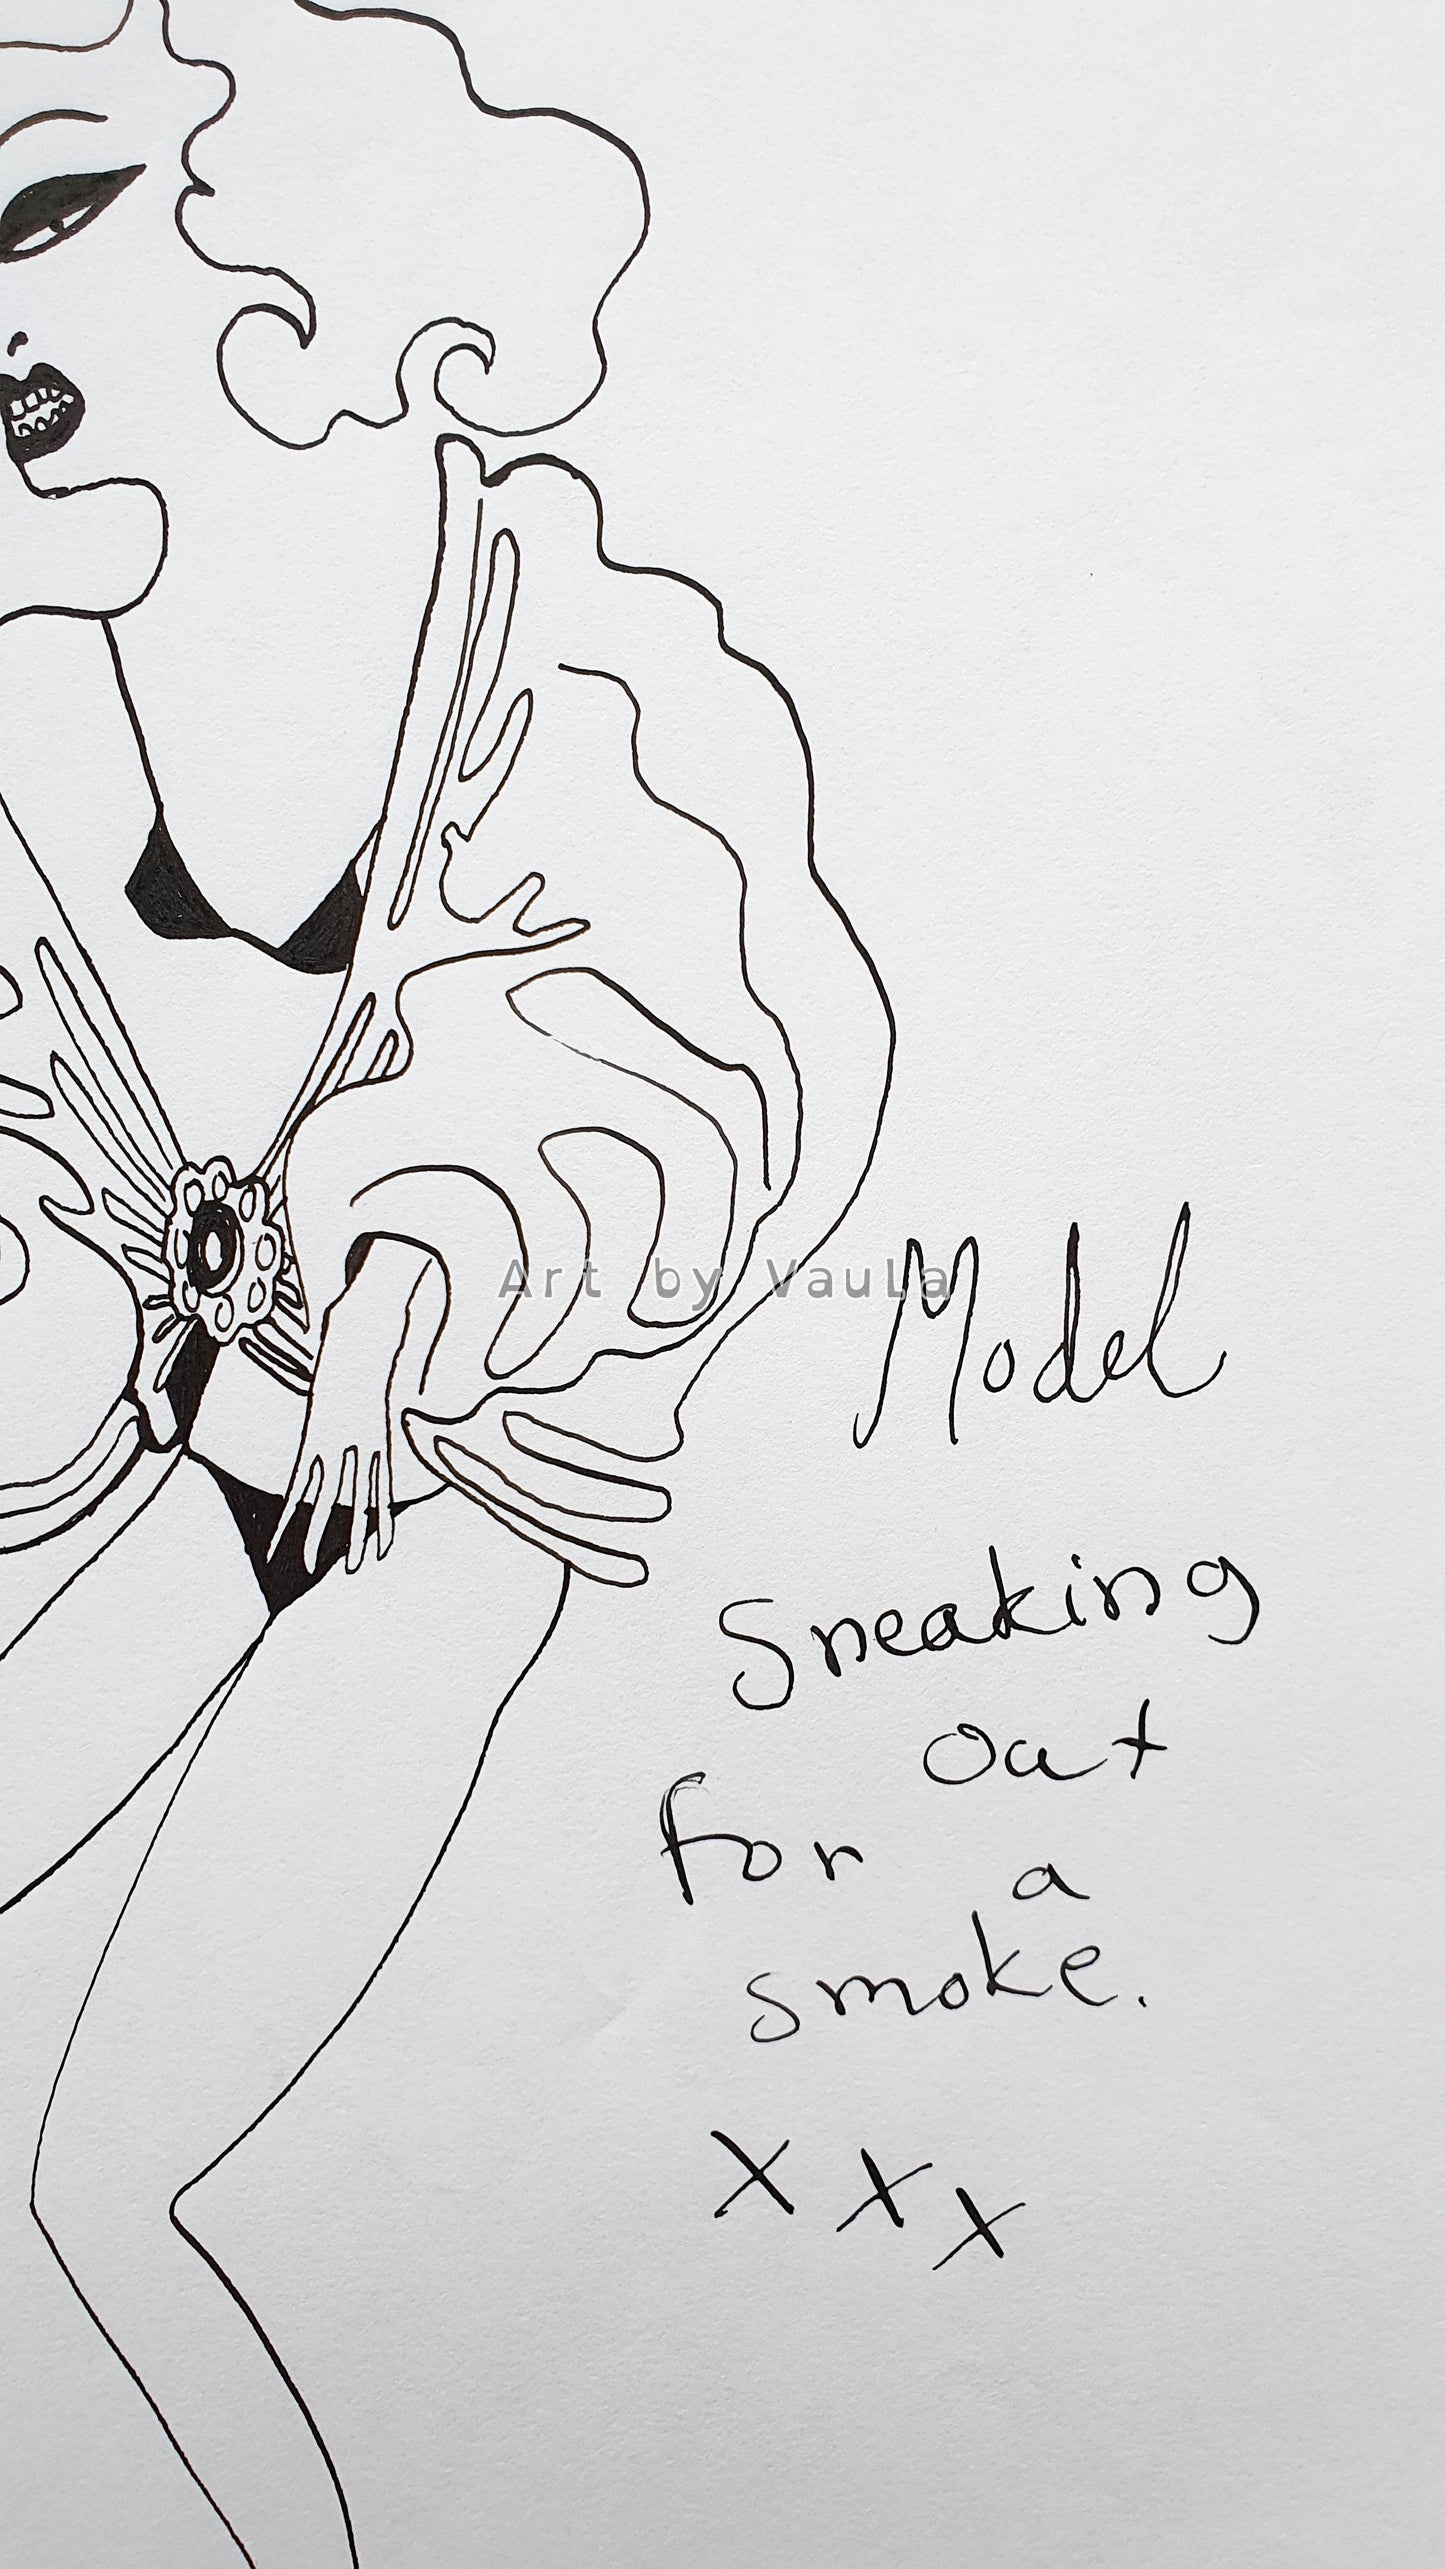 Art by Vaula
Model
Sneaking
Out
for a
smoke.
x x x